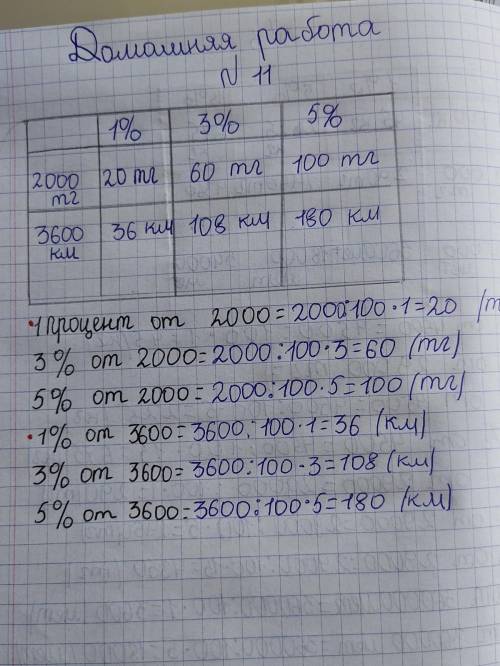 Домашняя работа
N 11
1% 3% 5%
2000 тг 20 тг 60 тг 100 тг
3600 км 36 км 108 км 180 км
1 процент от 2000=2000:100·1=20 (т
3% от 2000=2000:100·3=60 (тг)
5% от 2000=2000:100·5=100 (тг)
1% от 3600=3600:100·1=36 (км)
3% от 3600=3600:100·3=108 (км)
5% от 3600=3600:100·5=180 (км)